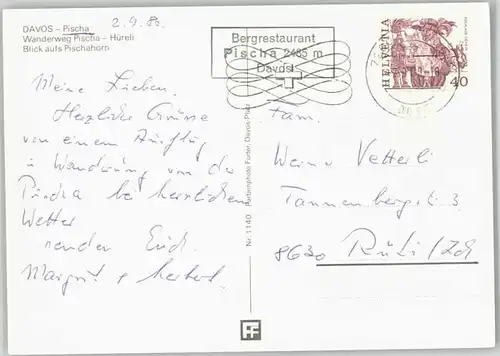 DAVOS – Pischa
Wanderweg Pischa – Hüreli
Blick aufs Pischahorn
2.9.80.
Bergrestaurant
Pischa 2485 m
Davos
HELVETIA
40
Meine Lieben.
Herzliche Grüsse
von einem Ausflug
u Wanderung von der
Pischa bei herrlichem
Wetter
senden Euch
Margrit & Herbert.
Nr. 1140 Plattenphoto Furter, Davos-Platz
Fam.
Werner Vetterli
Tannenbergstr. 3
8630 Rüti/Zch
FF